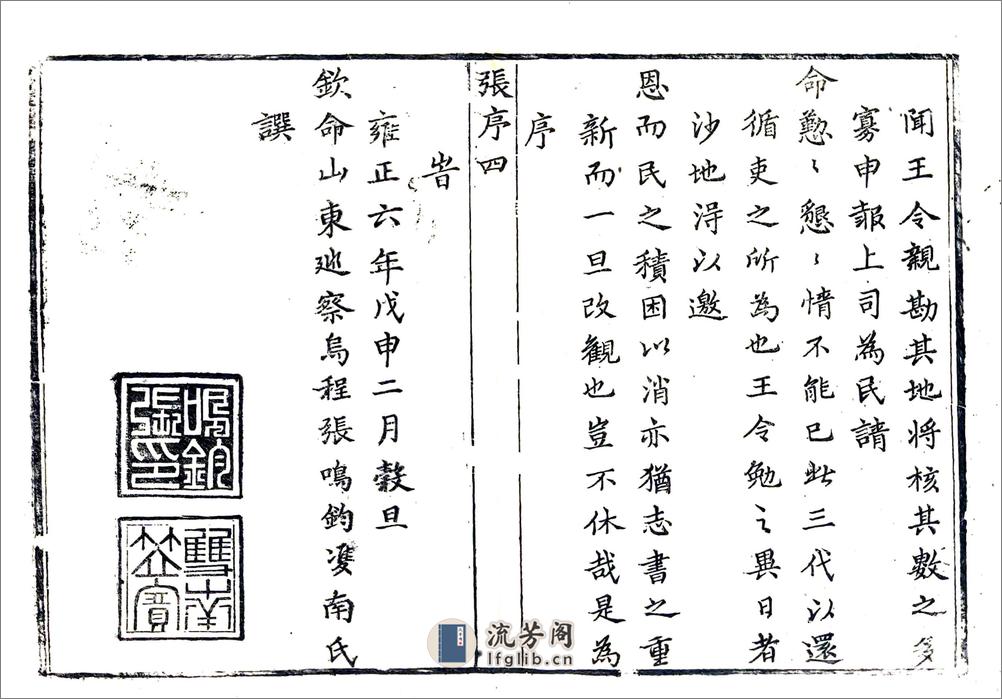 聞王令親勘其地将核其數之多
寡申報上司為民請
命懃〻懇〻情不能已此三代以還
循吏之所為也王令勉之異日者
沙地淂以邀
恩而民之積困以消亦猶志書之重
新而一旦改觀也豈不休哉是為
序
張序四
旹
雍正六年戊申二月穀旦
欽命山東廵察烏程張鳴鈞南氏
譔
張鳴鈞印
雙南
流芳阁
lfglib.cn